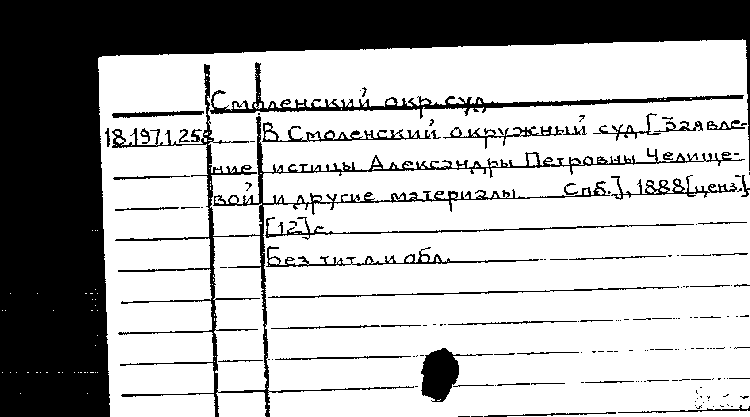 Смоленский окр. суд.
18.197.1.258. В Смоленский окружный суд. [Заявле-
ние истицы Александры Петровны Челище-
вой и другие материалы Спб.], 1888[ценз.]
[12]с.
Без тит.л. и обл.